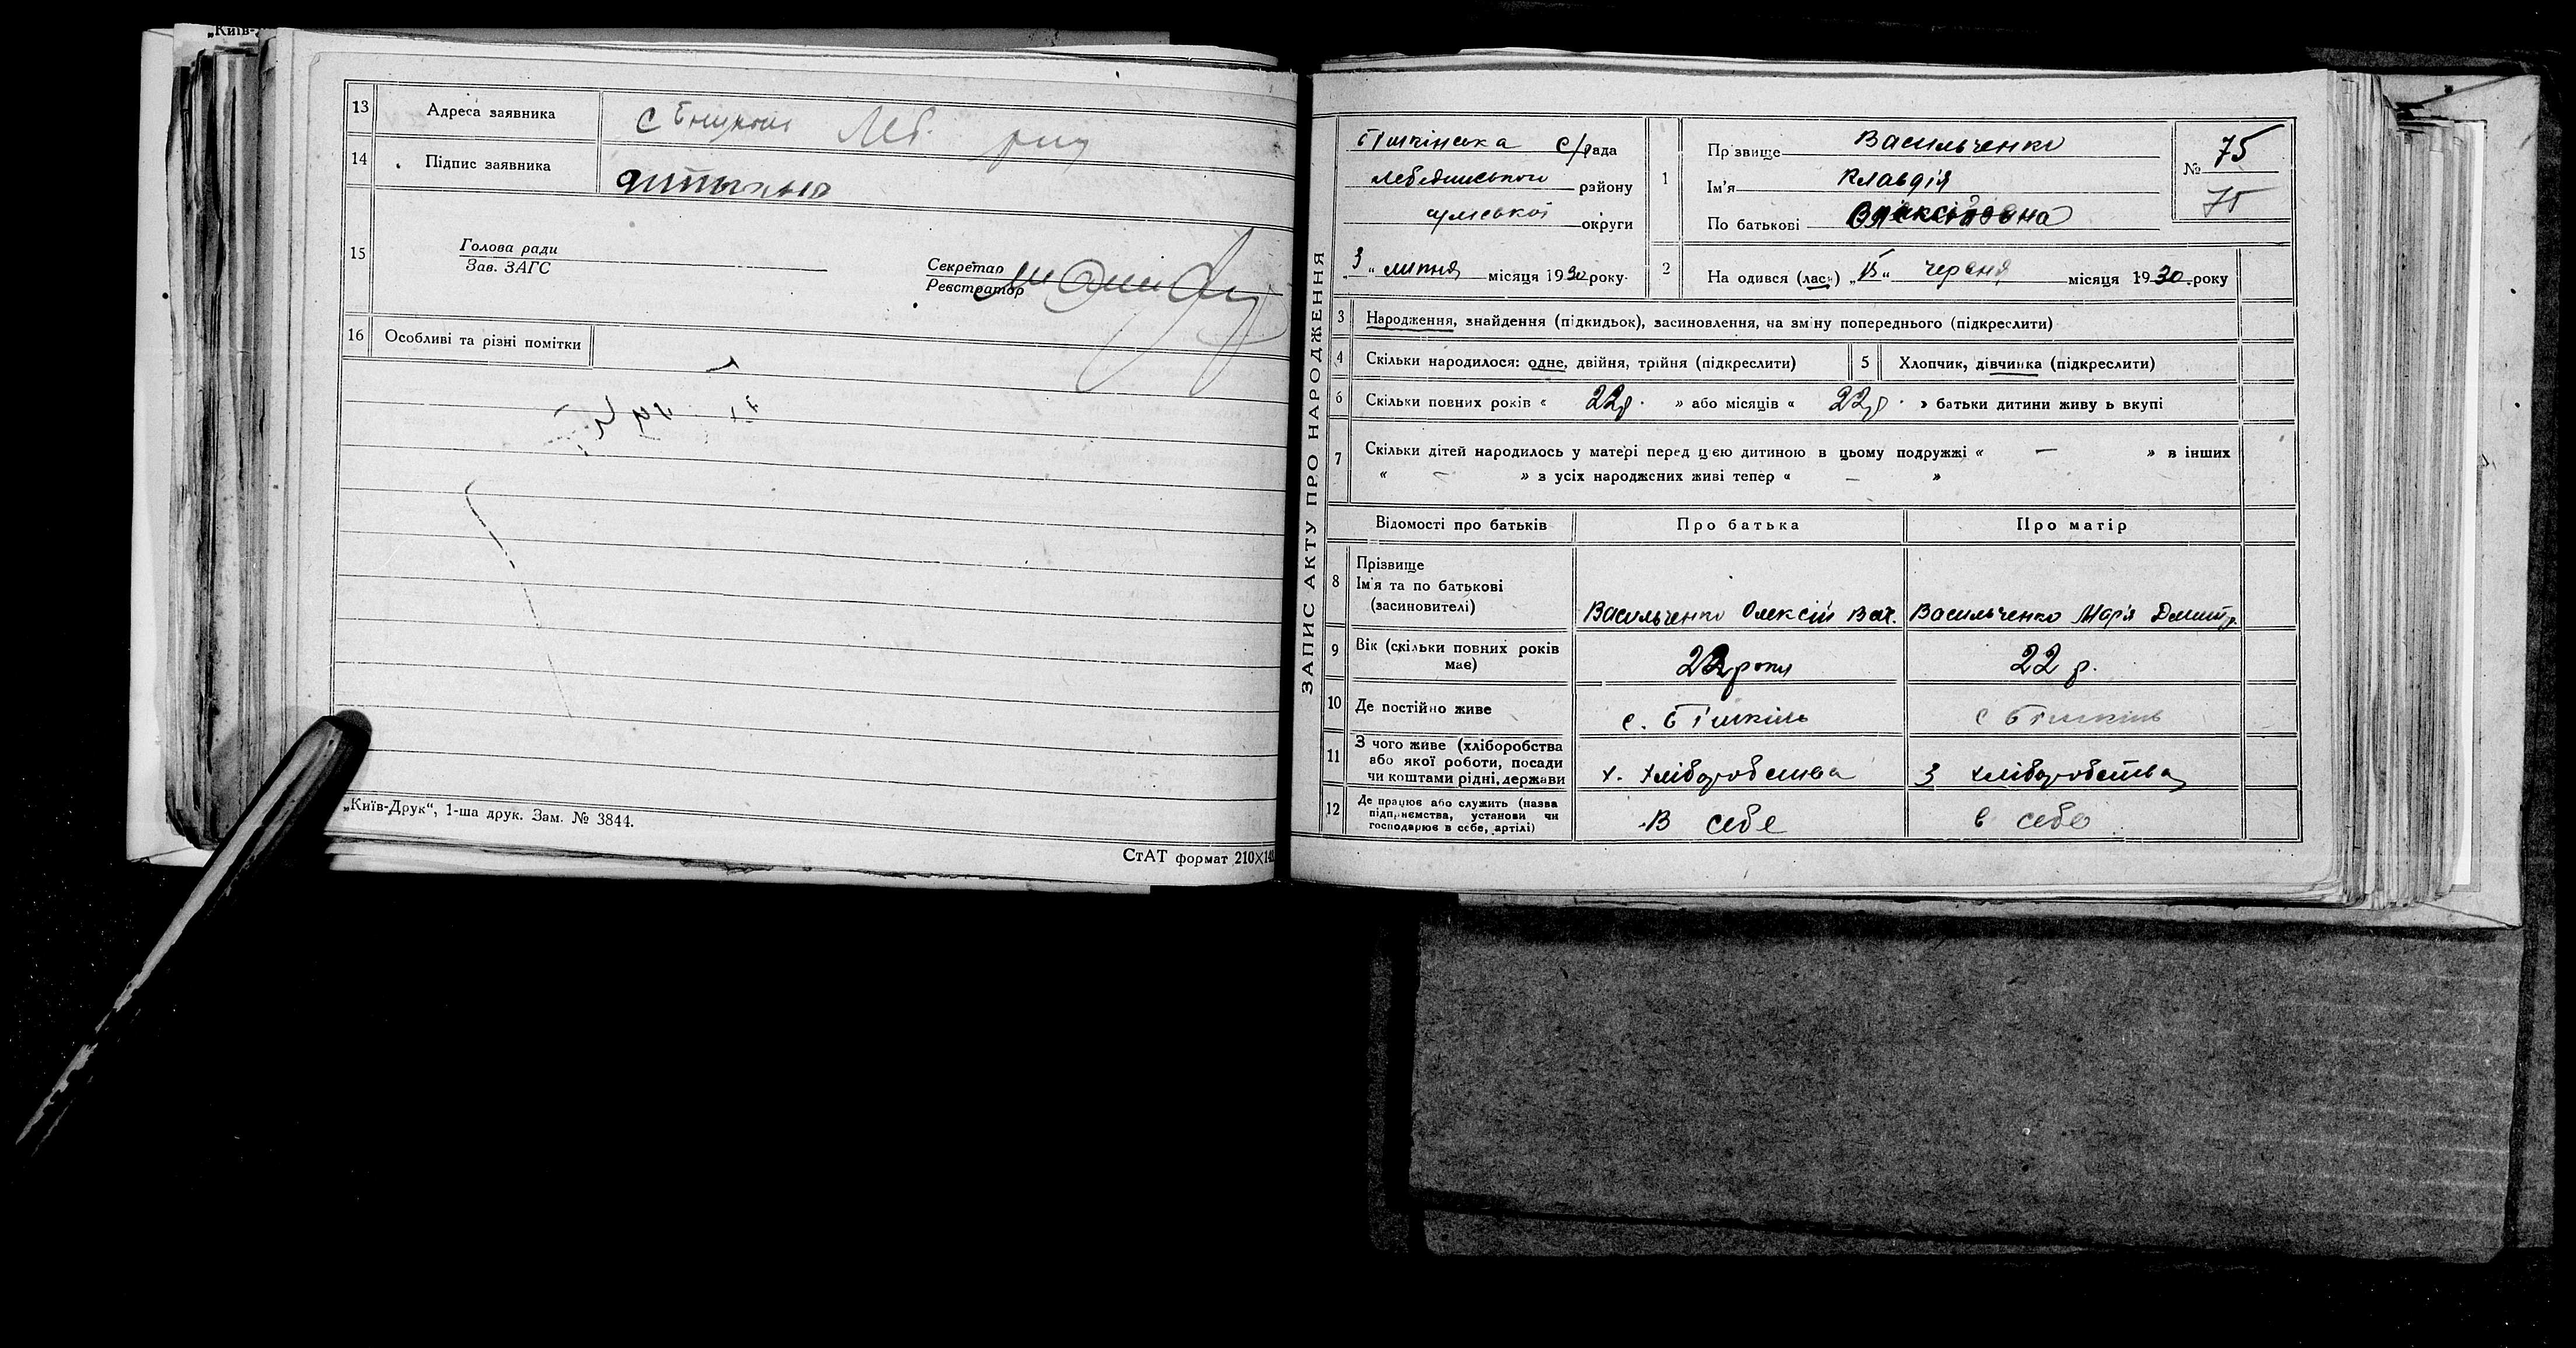 „Київ-
13 Адреса заявника с Леб.
14 Підпис заявника
15 Голова ради
Зав. ЗАГС
Секретар
Реєстратор
16 Особливі та різні помітки
„Київ-Друк“, 1-ша друк. Зам. № 3844.
СтАТ формат 210×14
ЗАПИС АКТУ ПРО НАРОДЖЕННЯ
Бішкінська с/рада
Лебединського району
Сумської округи
3 „ липня місяця 1930 року
1 Прізвище Васильченко
Ім'я Клавдія
По батькові Олексіївна
№ 75
75
2 На одився (лась) „ “ червня місяця 1930 року
3 Народження, знайдення (підкидьок), засиновлення, на зміну попереднього (підкреслити)
4 Скільки народилося: одне, двійня, трійня (підкреслити)
5 Хлопчик, дівчинка (підкреслити)
6 Скільки повних років « 22р. » або місяців « 22р. » батьки дитини живу ь вкупі
7 Скільки дітей народилось у матері перед цією дитиною в цьому подружжі « — » в інших
« — » з усіх народжених живі тепер « — »
Відомості про батьків Про батька Про матір
8 Прізвище
Ім'я та по батькові
(засиновителі)
Васильченко Олексій Вас. Васильченко Марія Дмитр.
9 Вік (скільки повних років
має)
22 роки 22 р.
10 Де постійно живе с. Бішкінь с Бішкінь
11 З чого живе (хліборобства
або якої роботи, посади
чи коштами рідні, держави
х. хліборобства З хліборобства
12 Де працює або служить (назва
підприємства, установи чи
господарює в себе, артілі)
В себе в себе